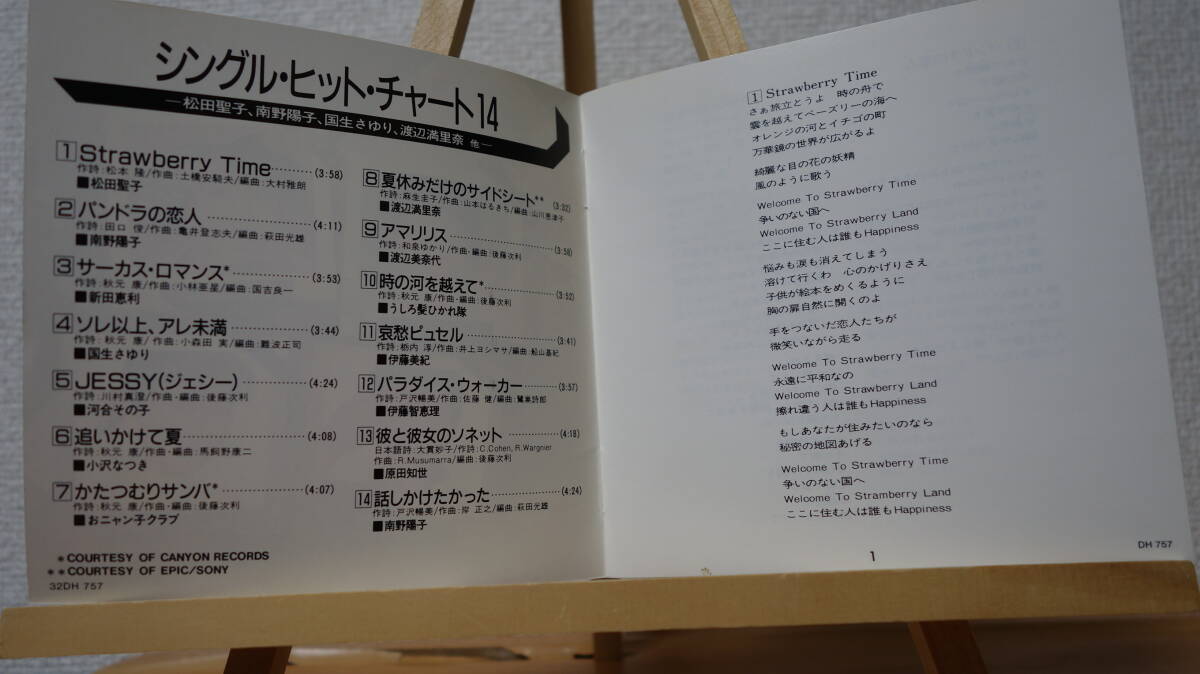 シングル・ヒット・チャート14
―松田聖子、南野陽子、国生さゆり、渡辺満里奈 他―
1 Strawberry Time………(3:58)
作詩:松本 隆/作曲:土橋安騎夫/編曲:大村雅朗
■松田聖子
2 パンドラの恋人………(4:11)
作詩:田口 俊/作曲:亀井登志夫/編曲:萩田光雄
■南野陽子
3 サーカス・ロマンス*………(3:53)
作詩:秋元 康/作曲:小林亜星/編曲:国吉良一
■新田恵利
4 ソレ以上、アレ未満………(3:44)
作詩:秋元 康/作曲:小森田 実/編曲:難波正司
■国生さゆり
5 JESSY(ジェシー)………(4:24)
作詩:川村真澄/作曲・編曲:後藤次利
■河合その子
6 追いかけて夏………(4:08)
作詩:秋元 康/作曲・編曲:馬飼野康二
■小沢なつき
7 かたつむりサンバ*………(4:07)
作詩:秋元 康/作曲・編曲:後藤次利
■おニャン子クラブ
8 夏休みだけのサイドシート**(3:32)
作詩:麻生圭子/作曲:山本はるきち/編曲:山川恵津子
■渡辺満里奈
9 アマリリス………(3:58)
作詩:和泉ゆかり/作曲・編曲:後藤次利
■渡辺美奈代
10 時の河を越えて*………(3:52)
作詩:秋元 康/作曲・編曲:後藤次利
■うしろ髪ひかれ隊
11 哀愁ピュセル………(3:41)
作詩:栃内 淳/作曲:井上ヨシマサ/編曲:船山基紀
■伊藤美紀
12 パラダイス・ウォーカー………(3:57)
作詩:戸沢暢美/作曲:佐藤 健/編曲:鷺巣詩郎
■伊藤智恵理
13 彼と彼女のソネット………(4:18)
日本語詩:大貫妙子/作詩:C.Cohen, R.Wargnier
作曲:R.Musumarra/編曲:後藤次利
■原田知世
14 話しかけたかった………(4:24)
作詩:戸沢暢美/作曲:岸 正之/編曲:萩田光雄
■南野陽子
*COURTESY OF CANYON RECORDS
**COURTESY OF EPIC/SONY
32DH 757
1 Strawberry Time
さぁ旅立とうよ 時の舟で
雲を越えてペーズリーの海へ
オレンジの河とイチゴの町
万華鏡の世界が広がるよ
綺麗な目の花の妖精
風のように歌う
Welcome To Strawberry Time
争いのない国へ
Welcome To Strawberry Land
ここに住む人は誰もHappiness
悩みも涙も消えてしまう
溶けて行くわ 心のかげりさえ
子供が絵本をめくるように
胸の扉自然に開くのよ
手をつないだ恋人たちが
微笑いながら走る
Welcome To Strawberry Time
永遠に平和なの
Welcome To Strawberry Land
擦れ違う人は誰もHappiness
もしあなたが住みたいのなら
秘密の地図あげる
Welcome To Strawberry Time
争いのない国へ
Welcome To Stramberry Land
ここに住む人は誰もHappiness
1
DH 757